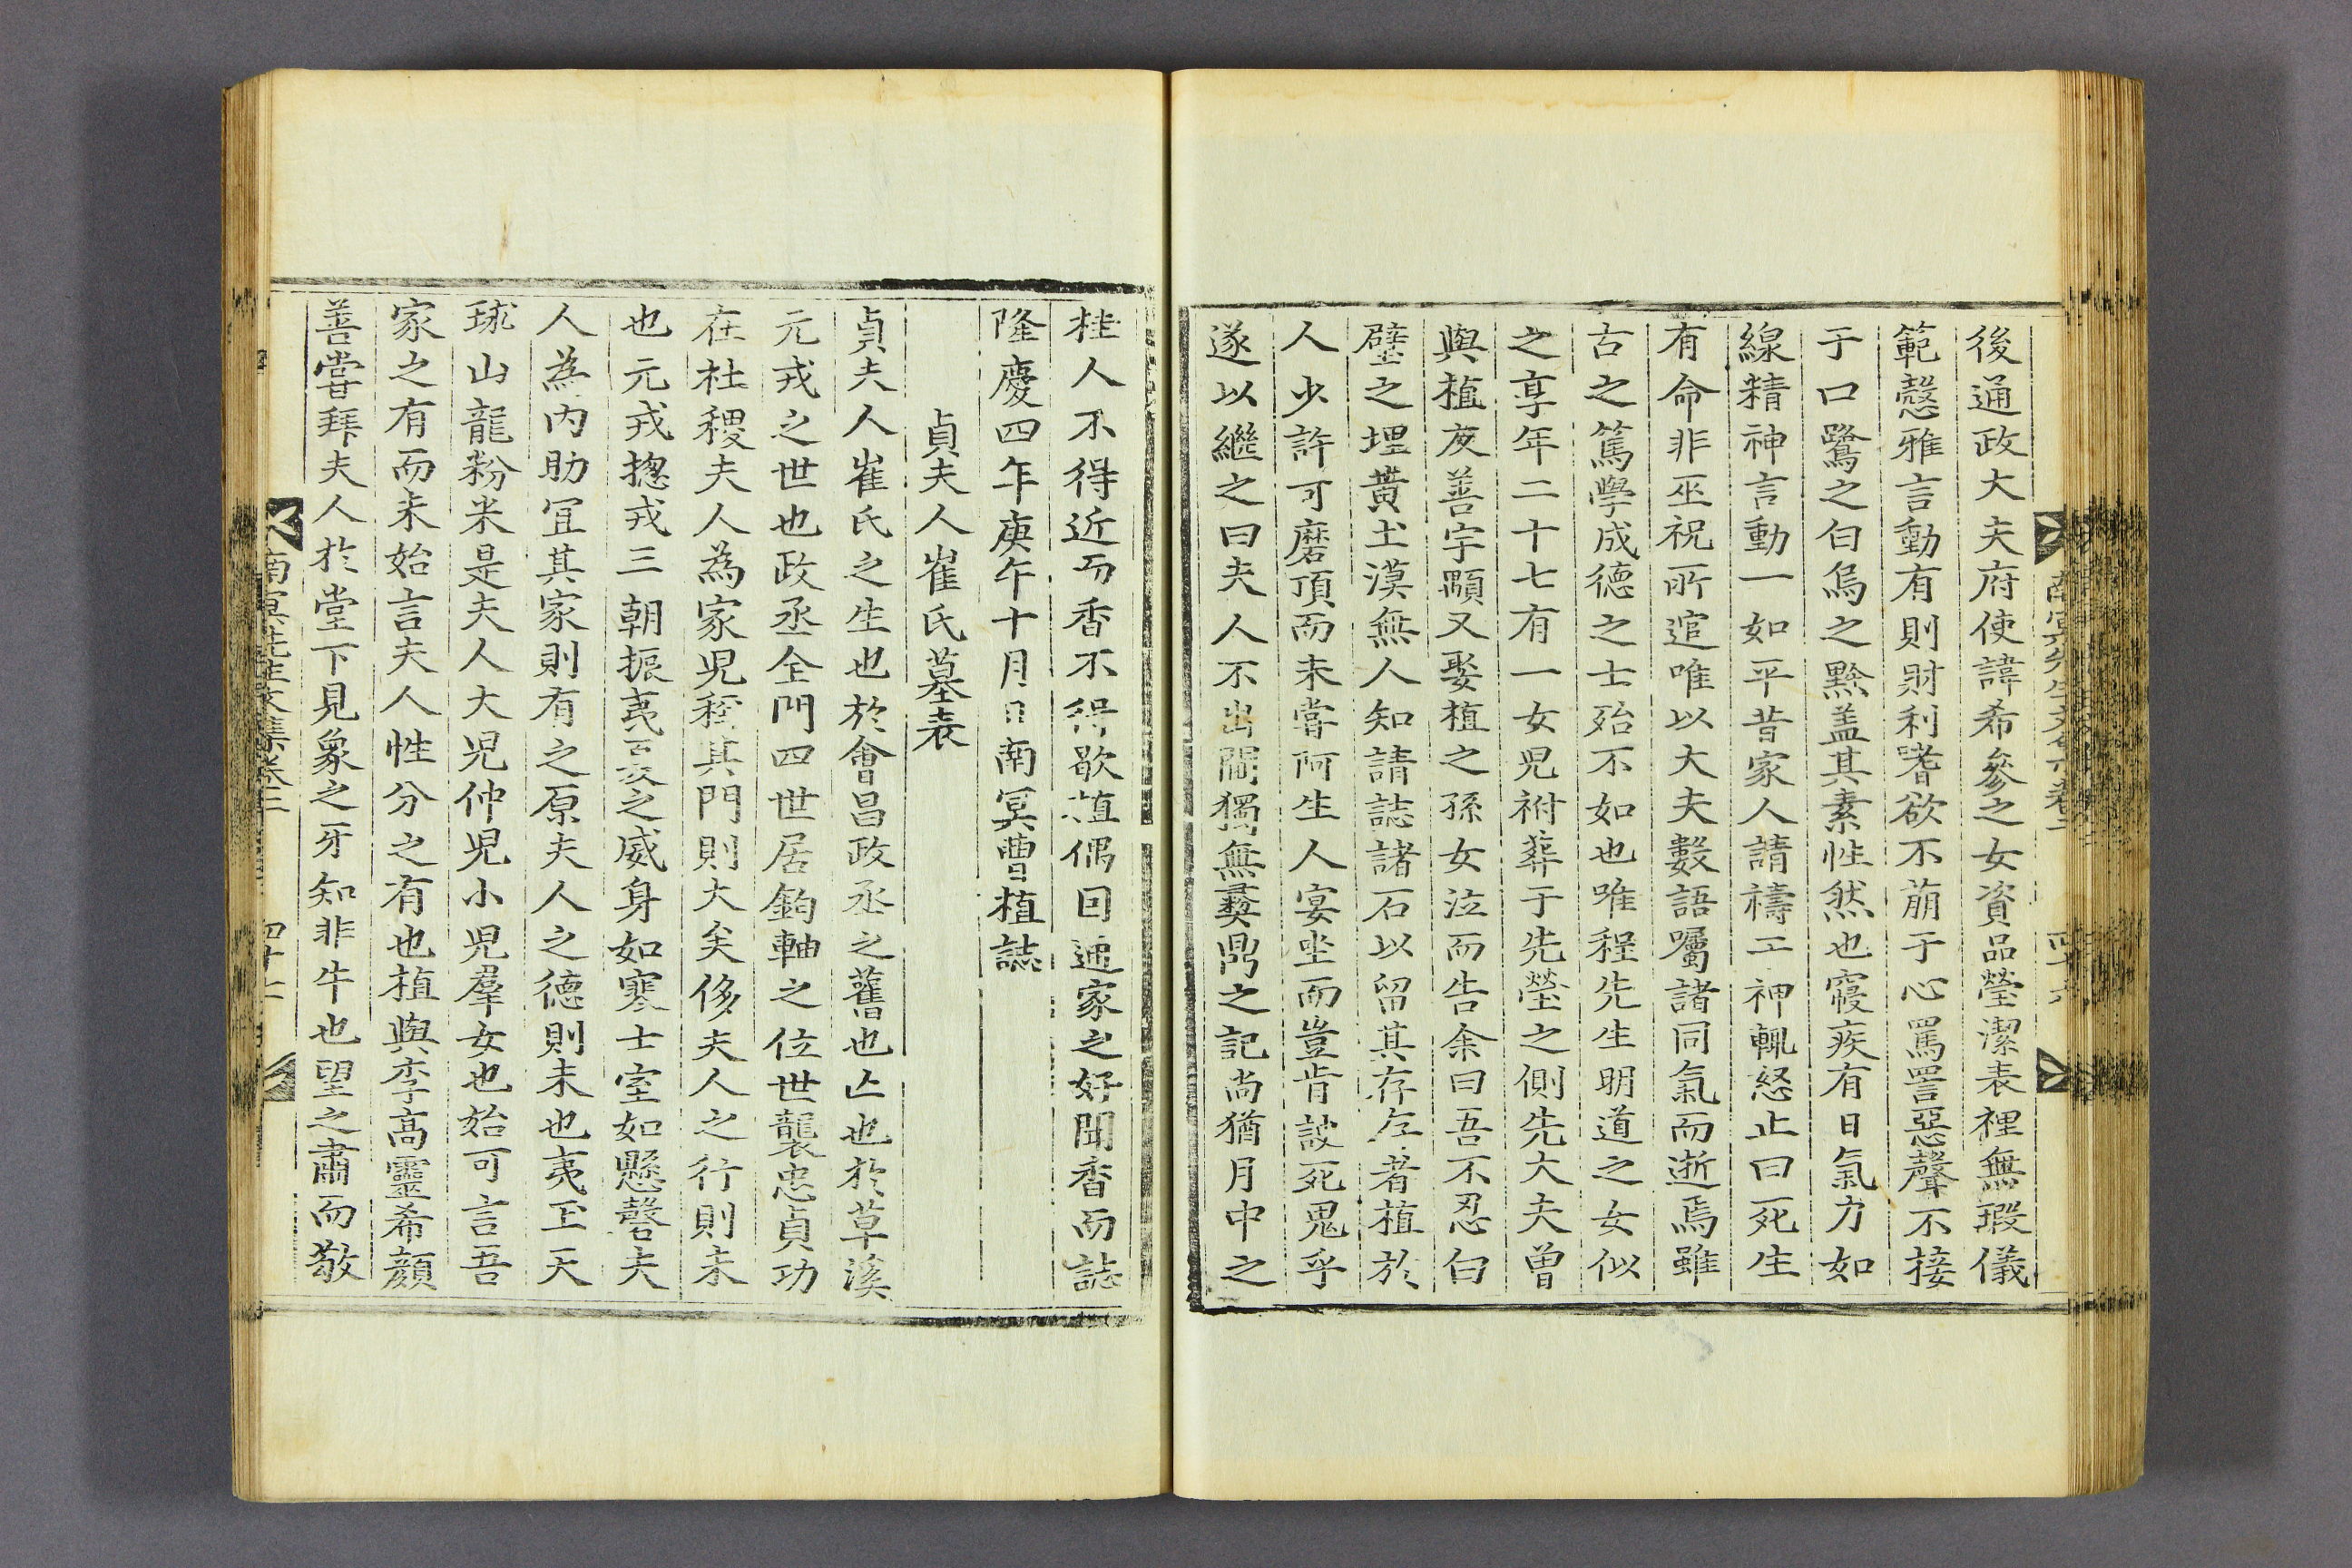 後通政大夫府使諱希參之女資品瑩潔表裡無瑕儀
範愨雅言動有則財利嗜欲不萠于心罵詈惡聲不接
于口鷺之白烏之黔盖其素性然也寑疾有日氣力如
線精神言動一如平昔家人請禱工神輒怒止曰死生
有命非巫祝所逭唯以大夫數語囑諸同氣而逝焉雖
古之篤學成德之士殆不如也唯程先生明道之女似
之享年二十七有一女児祔葬于先塋之側先大夫曾
與植友善字顒又娶植之孫女泣而告余曰吾不忍白
璧之埋黄土漠無人知請誌諸石以留其存左者植於
人少許可磨頂而未嘗阿生人宴坐而豈肯詖死鬼乎
遂以繼之曰夫人不出閫獨無彛鼎之記尚猶月中之
桂人不得近而香不得歇植偶回通家之好聞香而誌
隆慶四年庚午十月日南冥曺植誌
貞夫人崔氏墓表
貞夫人崔氏之生也於會昌政丞之舊也亾也於草溪
元戎之世也政丞全門四世居鈞軸之位世襲忠貞功
在社稷夫人為家児稱其門則大矣侈夫人之行則未
也元戎摠戎三朝振夷𠮓之威身如寒士室如懸磬夫
人為内助冝其家則有之原夫人之德則未也夷玉天
球山龍粉米是夫人大児仲児小児羣女也始可言吾
家之有而未始言夫人性分之有也植與李高靈希顔
善嘗拜夫人於堂下見象之牙知非牛也望之肅而敬
南冥先生文集卷二 四十六
南冥先生文集卷二 四十七